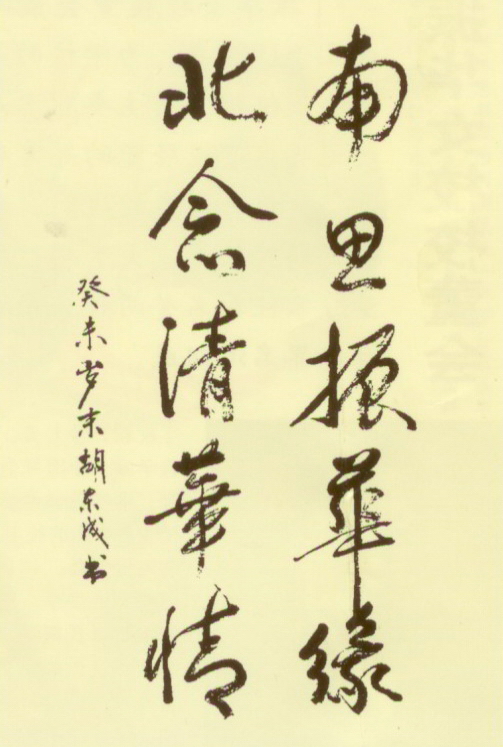 南思振華缘
北念清華情
癸未岁末胡东成书